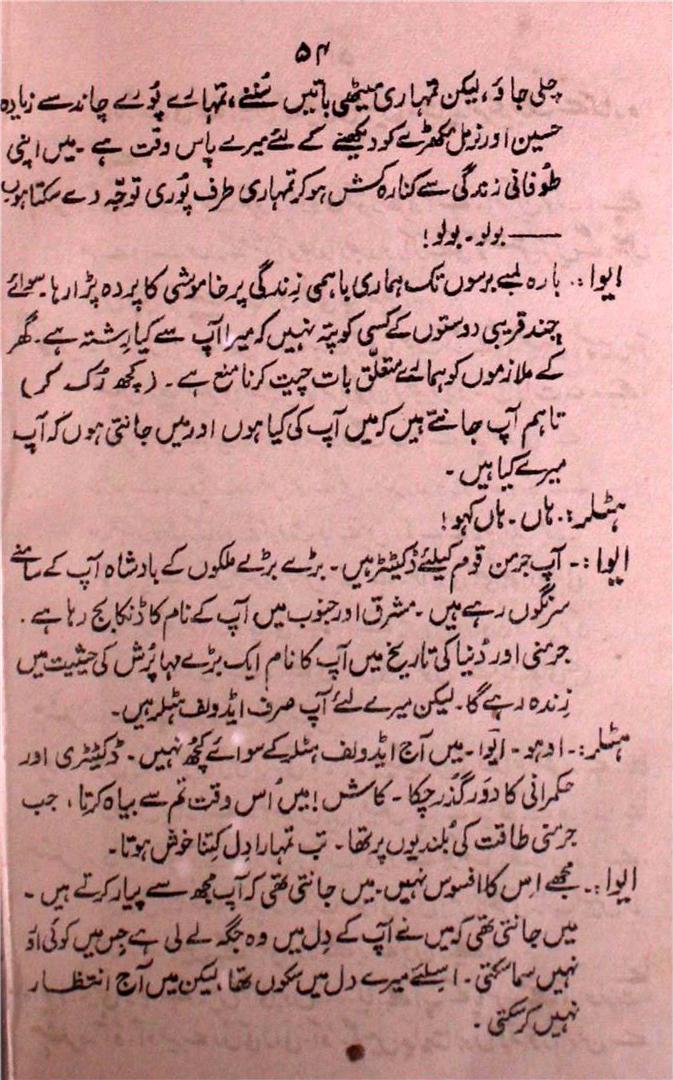 ۵۴
چلی جاؤ، لیکن تمہاری میٹھی باتیں سُننے، تمہارے پُورے چاند سے زیادہ
حسین اور نرمل مکھڑے کو دیکھنے کے لئے میرے پاس وقت ہے ۔ میں اپنی
طُوفانی زندگی سے کنارہ کش ہو کر تمہاری طرف پُوری توجّہ دے سکتا ہوں
—— بولو ۔ بولو!
ایوا:۔ بارہ لمبے برسوں تک ہماری باہمی زِندگی پر خاموشی کا پردہ پڑا رہا۔ سوائے
چند قریبی دوستوں کے کسی کو پتہ نہیں کہ میرا آپ سے کیا رِشتہ ہے ۔ گھر
کے ملازموں کو ہمارے متعلّق بات چیت کرنا منع ہے ۔ (کچھ رُک کر)
تاہم آپ جانتے ہیں کہ میں آپ کی کیا ہوں اور میں جانتی ہوں کہ آپ
میرے کیا ہیں ۔
ہٹلر:۔ ہاں ۔ ہاں کہو!
ایوا:۔ آپ جرمن قوم کیلئے ڈکٹیٹر ہیں ۔ بڑے بڑے ملکوں کے بادشاہ آپ کے سامنے
سرنگوں رہے ہیں ۔ مشرق اور جنوب میں آپ کے نام کا ڈنکا بج رہا ہے ۔
جرمنی اور دُنیا کی تاریخ میں آپ کا نام ایک بڑے مہاپُرش کی حیثیت میں
زِندہ رہے گا ۔ لیکن میرے لئے آپ صرف ایڈولف ہٹلر ہیں ۔
ہٹلر:۔ اوہو ۔ ایوا ۔ میں آج ایڈولف ہٹلر کے سوائے کچُھ نہیں ۔ ڈکٹیٹری اور
حکمرانی کا دَور گذر چکا ۔ کاش! میں اُس وقت تم سے بیاہ کرتا، جب
جرمنی طاقت کی بُلندیوں پر تھا ۔ تب تمہارا دِل کِتنا خوش ہوتا ۔
ایوا:۔ مجُھے اِس کا افسوس نہیں ۔ میں جانتی تھی کہ آپ مجھ سے پیار کرتے ہیں ۔
میں جانتی تھی کہ میں نے آپ کے دِل میں وہ جگہ لے لی ہے جِس میں کوئی اَور
نہیں سما سکتی ۔ اِسلئے میرے دل میں سکوں تھا، لیکن میں آج انتظار
نہیں کر سکتی ۔